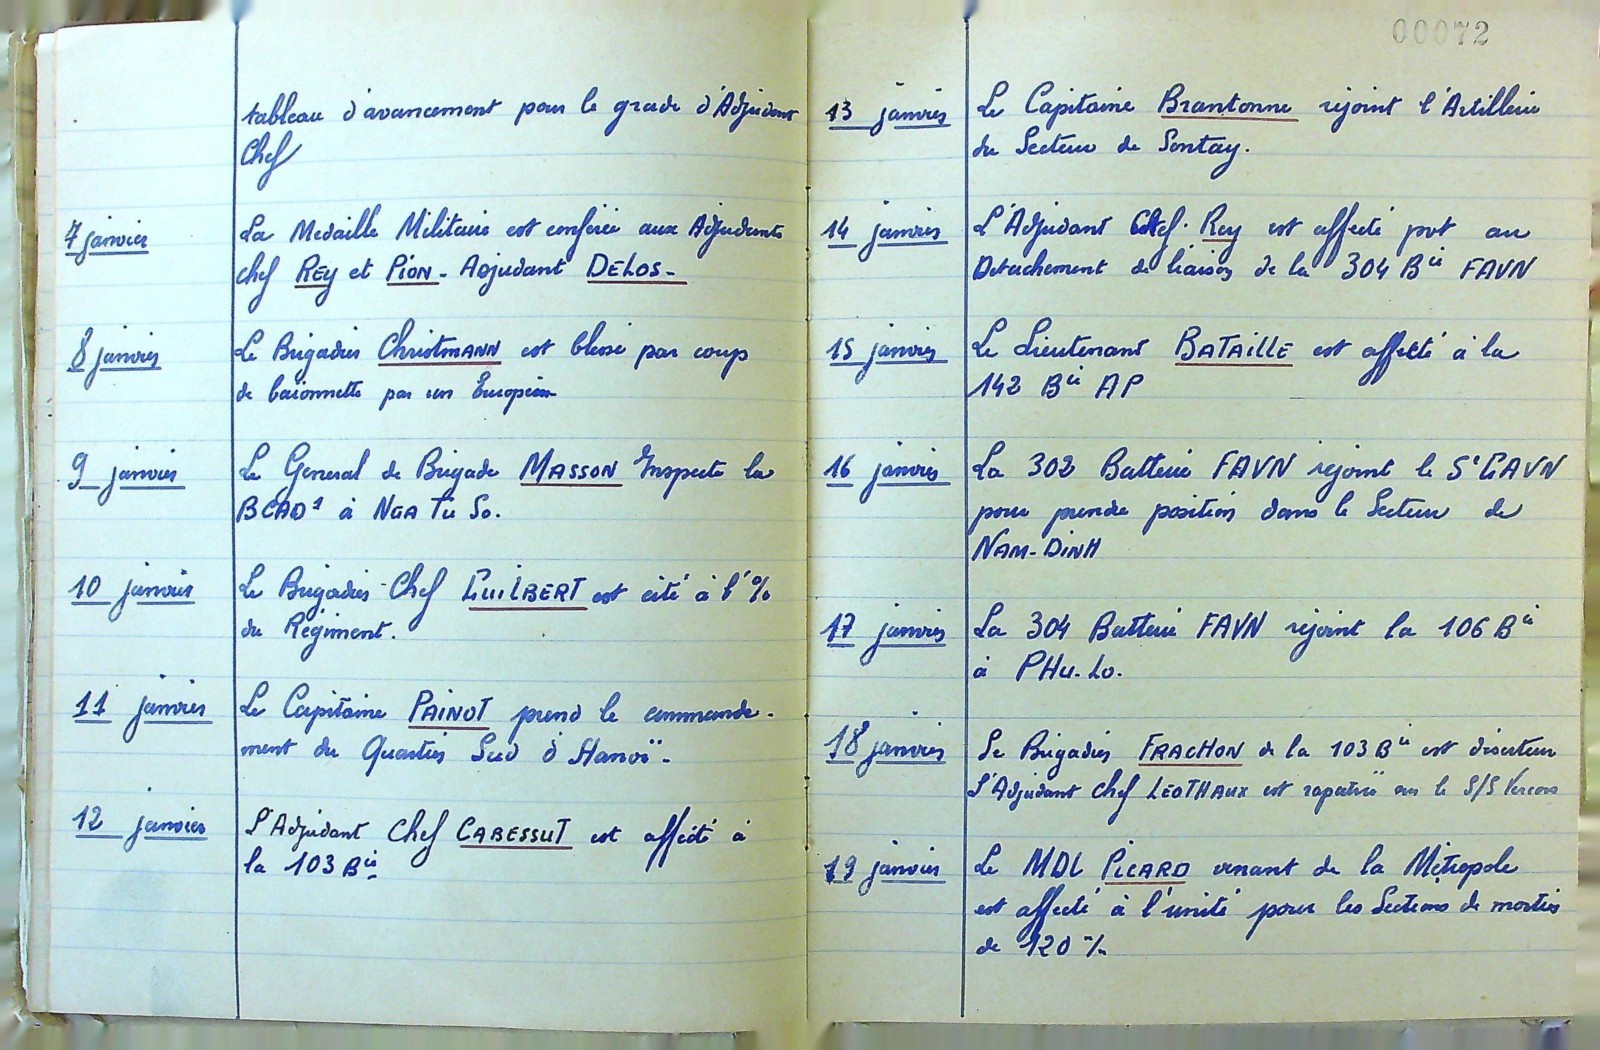 tableau d'avancement pour le grade d'Adjudant
Chef
7 janvier La Medaille Militaire est conférée aux Adjudants
chef REY et PION - Adjudant DELOS -
8 janvier Le Brigadier Christmann est blessé par coup
de baïonnette par un Européen
9 janvier Le General de Brigade MASSON Inspecte la
BCAD 1 à NGA Tu So.
10 janvier Le Brigadier-Chef GUILBERT est cité à l'%
du Régiment.
11 janvier Le Capitaine PAINOT prend le commande-
ment du Quartier Sud à Hanoï -
12 janvier L'Adjudant Chef CABESSUT est affecté à
la 103 Bie
00072
13 janvier Le Capitaine Brantonne rejoint l'Artillerie
du Secteur de Sontay.
14 janvier L'Adjudant Chef. Rey est affecté pvt au
Detachement de liaison de la 304 Bie FAVN
15 janvier Le Lieutenant BATAILLE est affecté à la
142 Bie AP
16 janvier La 302 Batterie FAVN rejoint le St GAVN
pour prendre position dans le Secteur de
NAM-DINH
17 janvier La 304 Batterie FAVN rejoint la 106 Bie
à PHu-Lo.
18 janvier Le Brigadier FRACHON de la 103 Bie est déserteur
L'Adjudant chef LEOTHAUX est rapatrié sur le S/S Vercors
19 janvier Le MDL PICARD venant de la Métropole
est affecté à l'unité pour les Sections de mortier
de 120 m/m